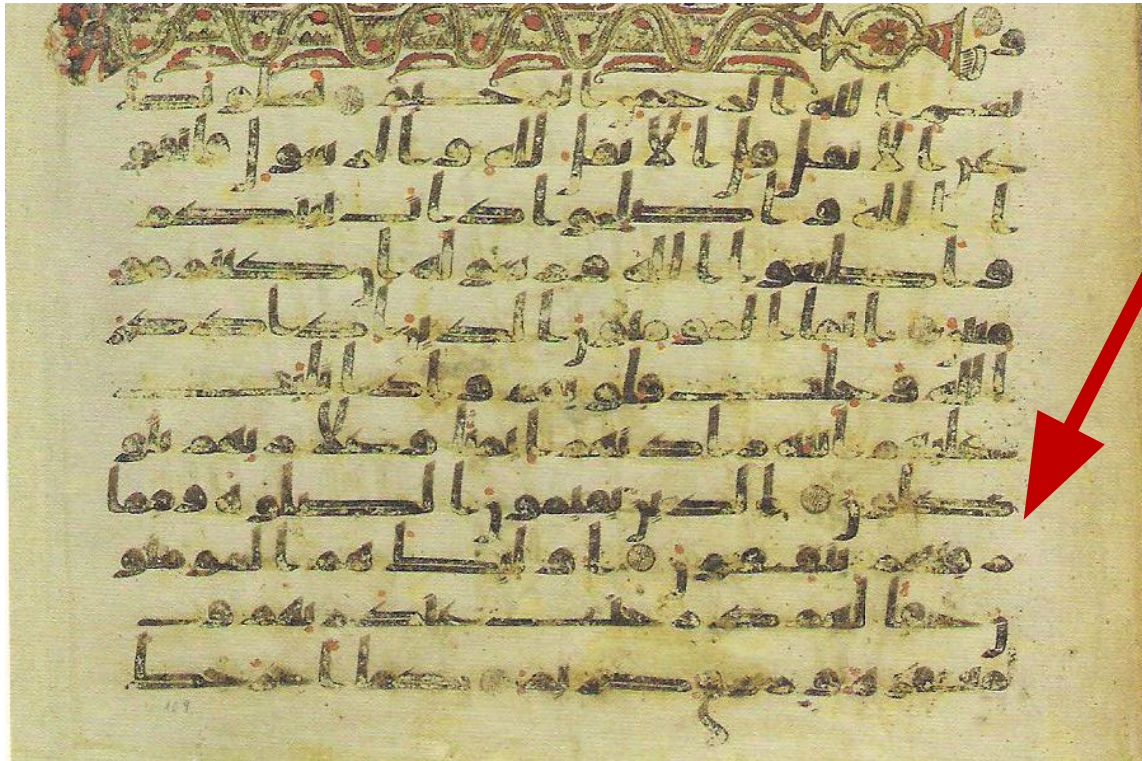 بسم الله الرحمن الرحيم يسلونك
عن الانفل قل الانفل لله والرسول فاتقو
ا الله واصلحوا ذات بينكم
واطيعوا الله ورسوله ان كنتم مو
منين انما المومنون الذين اذا ذكر
الله وجلت قلوبهم واذا تليت
عليهم ايته زادتهم ايمنا وعلى ربهم يتو
كلون الذين يقيمون الصلوة ومما
رزقنهم ينفقون اولئك هم المومنو
ن حقا لهم درجت عند ربهم ومغ
فرة ورزق كريم كما اخرجك